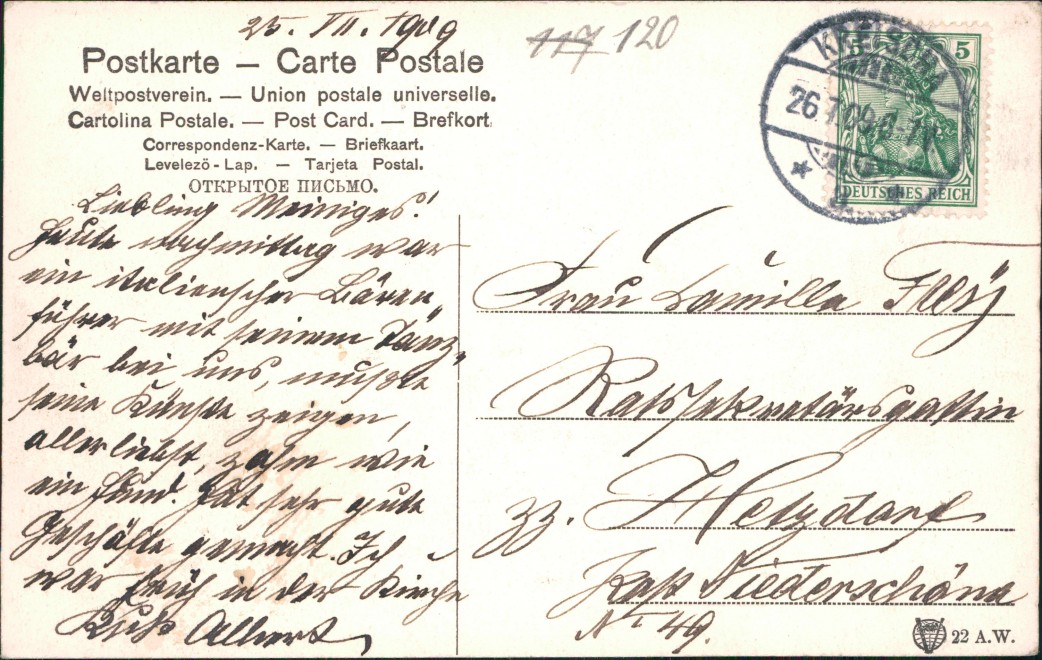 25. VII. 1909
117 120
Postkarte – Carte Postale
Weltpostverein. — Union postale universelle.
Cartolina Postale. — Post Card. — Brefkort.
Correspondenz-Karte. — Briefkaart.
Levelezö-Lap. — Tarjeta Postal.
ОТКРЫТОЕ ПИСЬМО.
5 5
DEUTSCHES REICH
KREISCHA
26.7.09
Liebling Meiniges!
Heute nachmittag war
ein italienischer Bären„
führer mit seinem Tanz„
bär bei uns, mußte
seine Künste zeigen,
allerliebst, zahm wie
ein Hund. Hat sehr gute
Geschäfte gemacht. Ich
war früh in der Kirche
Kuß Albert
Frau Camilla
Ratssekretärsgattin
zz. Hetzdorf
Post Niederschöna
No 49.
22 A.W.